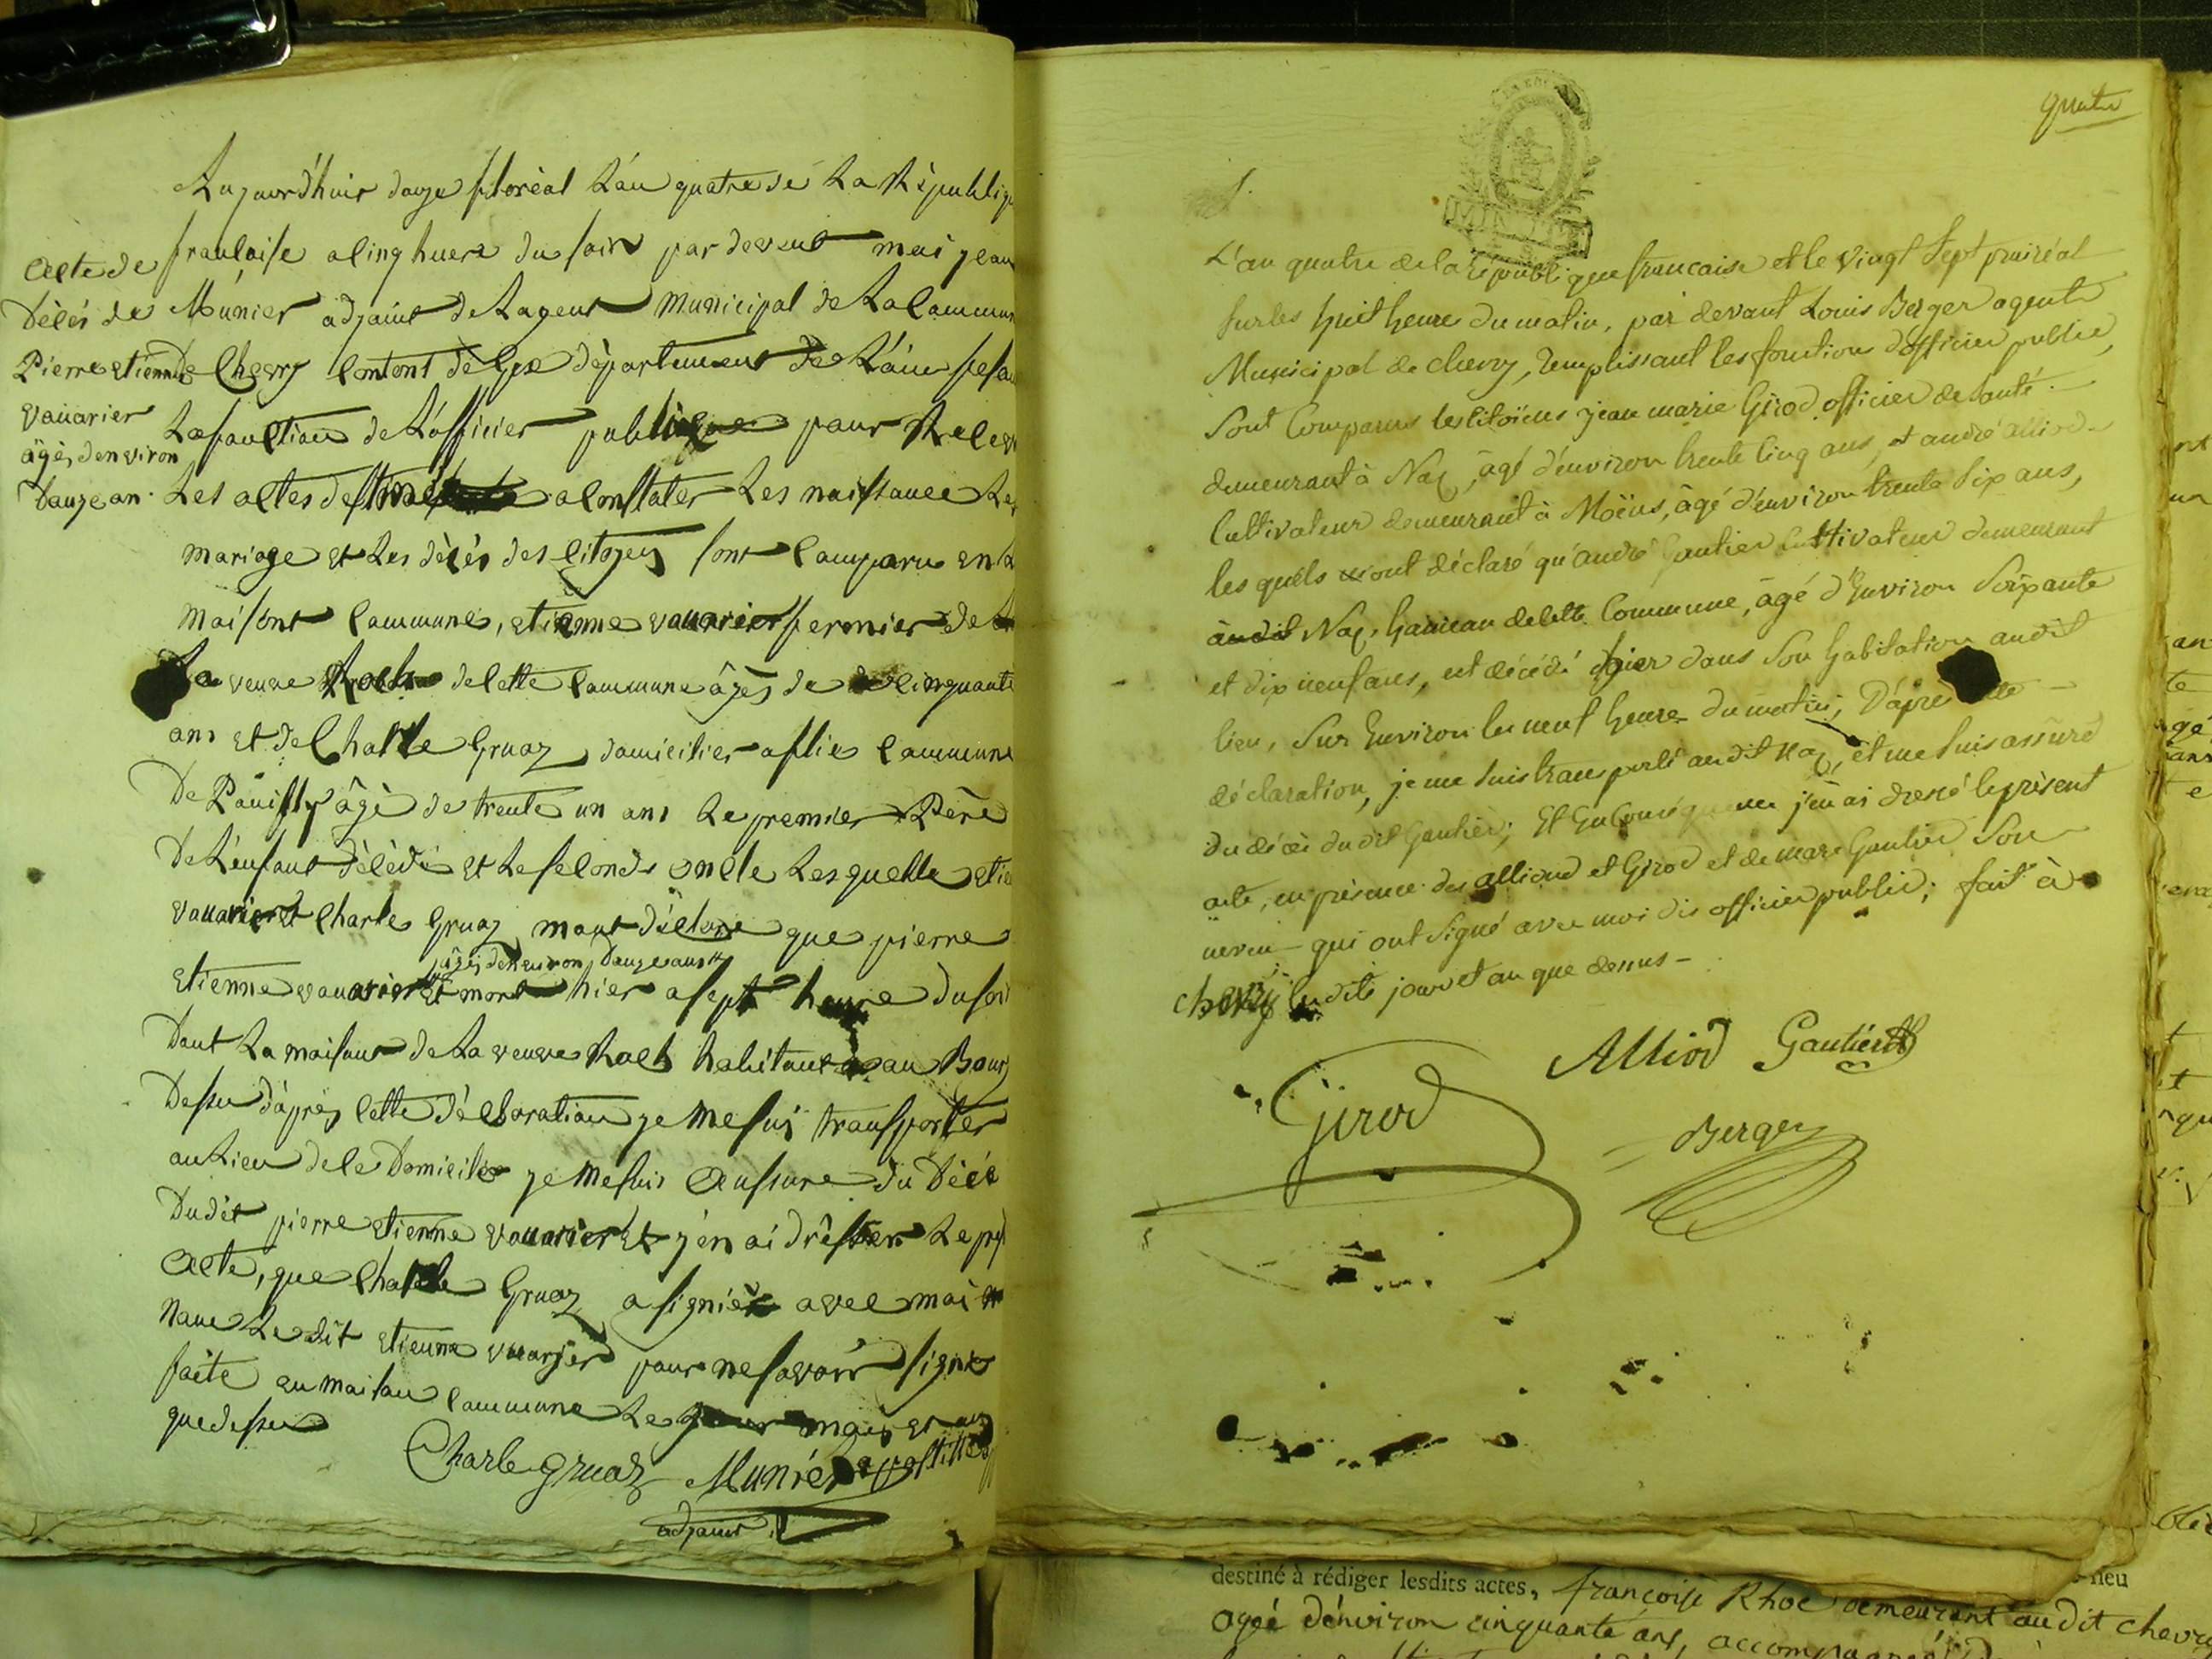 Aujourd'huir douze floréal L'an quatre de La Républiq
franſoiſe a cinq huere du ſoir par devent moi jean
Munier adjoint de Lagent Municipal de La commun
De Chevry contont de Gex département de L'ain feſan
La fonction de L'officier publique pour Relev
Les actes deſtiné a conſtater Les naiſsance Les
mariage et Les décés des citoyen ſont comparu en L
maiſont commune, etienne vauarier fermier de
La veuve Roch de cette commune âgés de cinquante
ans et de Charle Gruaz domicilier aflie commune
De Pouilly âgé de trente un ans Le premier Père
De L'enfant décédé et Le ſecond oncle Lesquelle etie
vauarier et Charle Gruaz mont déclare que pierre
âgés denviron douze ans
etienne vauarier et mort hier a ſept heure du ſoir
Dant La maiſont de La veuve Roch habitant au Bourg
Deſſu d'âpres cette déclaration je me ſui tranſporter
au Lieu de ce Domicile je me ſuis aſſure du Décé
Dudit pierre etienne vauarier et j'en ai drêſser Le pré
acte, que Charle Gruaz a ſignié avec moi
none Le dit etienne vuarier pour ne ſavoir ſigner
faite en maiſon commune Le jour mois et an
que deſſu
Charle gruaz Muniér
adjoint
acte de
Décés de
Pierre etienne
vauarier
âgés denviron
douze an
quatre
L'an quatre de la république francaise et le vingt sept prairéal
sur les huit heure du matin, par devant Louis Berger agent
Municipal de chevry, remplissant les fonctions d'officier public,
sont comparus les citoïens jean marie Girod officier de santé
demeurant à Naz, âgé d'environ trente cinq ans, et andré alliod
cultivateur demeurant à Moëns, âgé d'environ trente six ans,
les quels m'ont déclaré qu'andré Gautier cultivateur demeurant
audit Naz, hameau de cette commune, âgé d'environ soixante
et dix neuf ans, est décédé hier dans son habitation audit
lieu, sur environ les neuf heure du matin; D'apre
déclaration, je me suis transporté audit Naz, et me suis assuré
du décès dudit Gautier; Et en conséquence j'en ai dressé le présent
acte, en présence des alliod et Girod et de marc Gautier son
neveu qui ont signé avec moi dis officier public; fait à
chevry les dits jour et an que dessus
Alliod Gautier
Girod
Berger
destiné à rédiger lesdits actes, françoise Rhoc demeurant audit chevry
agée d'environ cinquante ans,